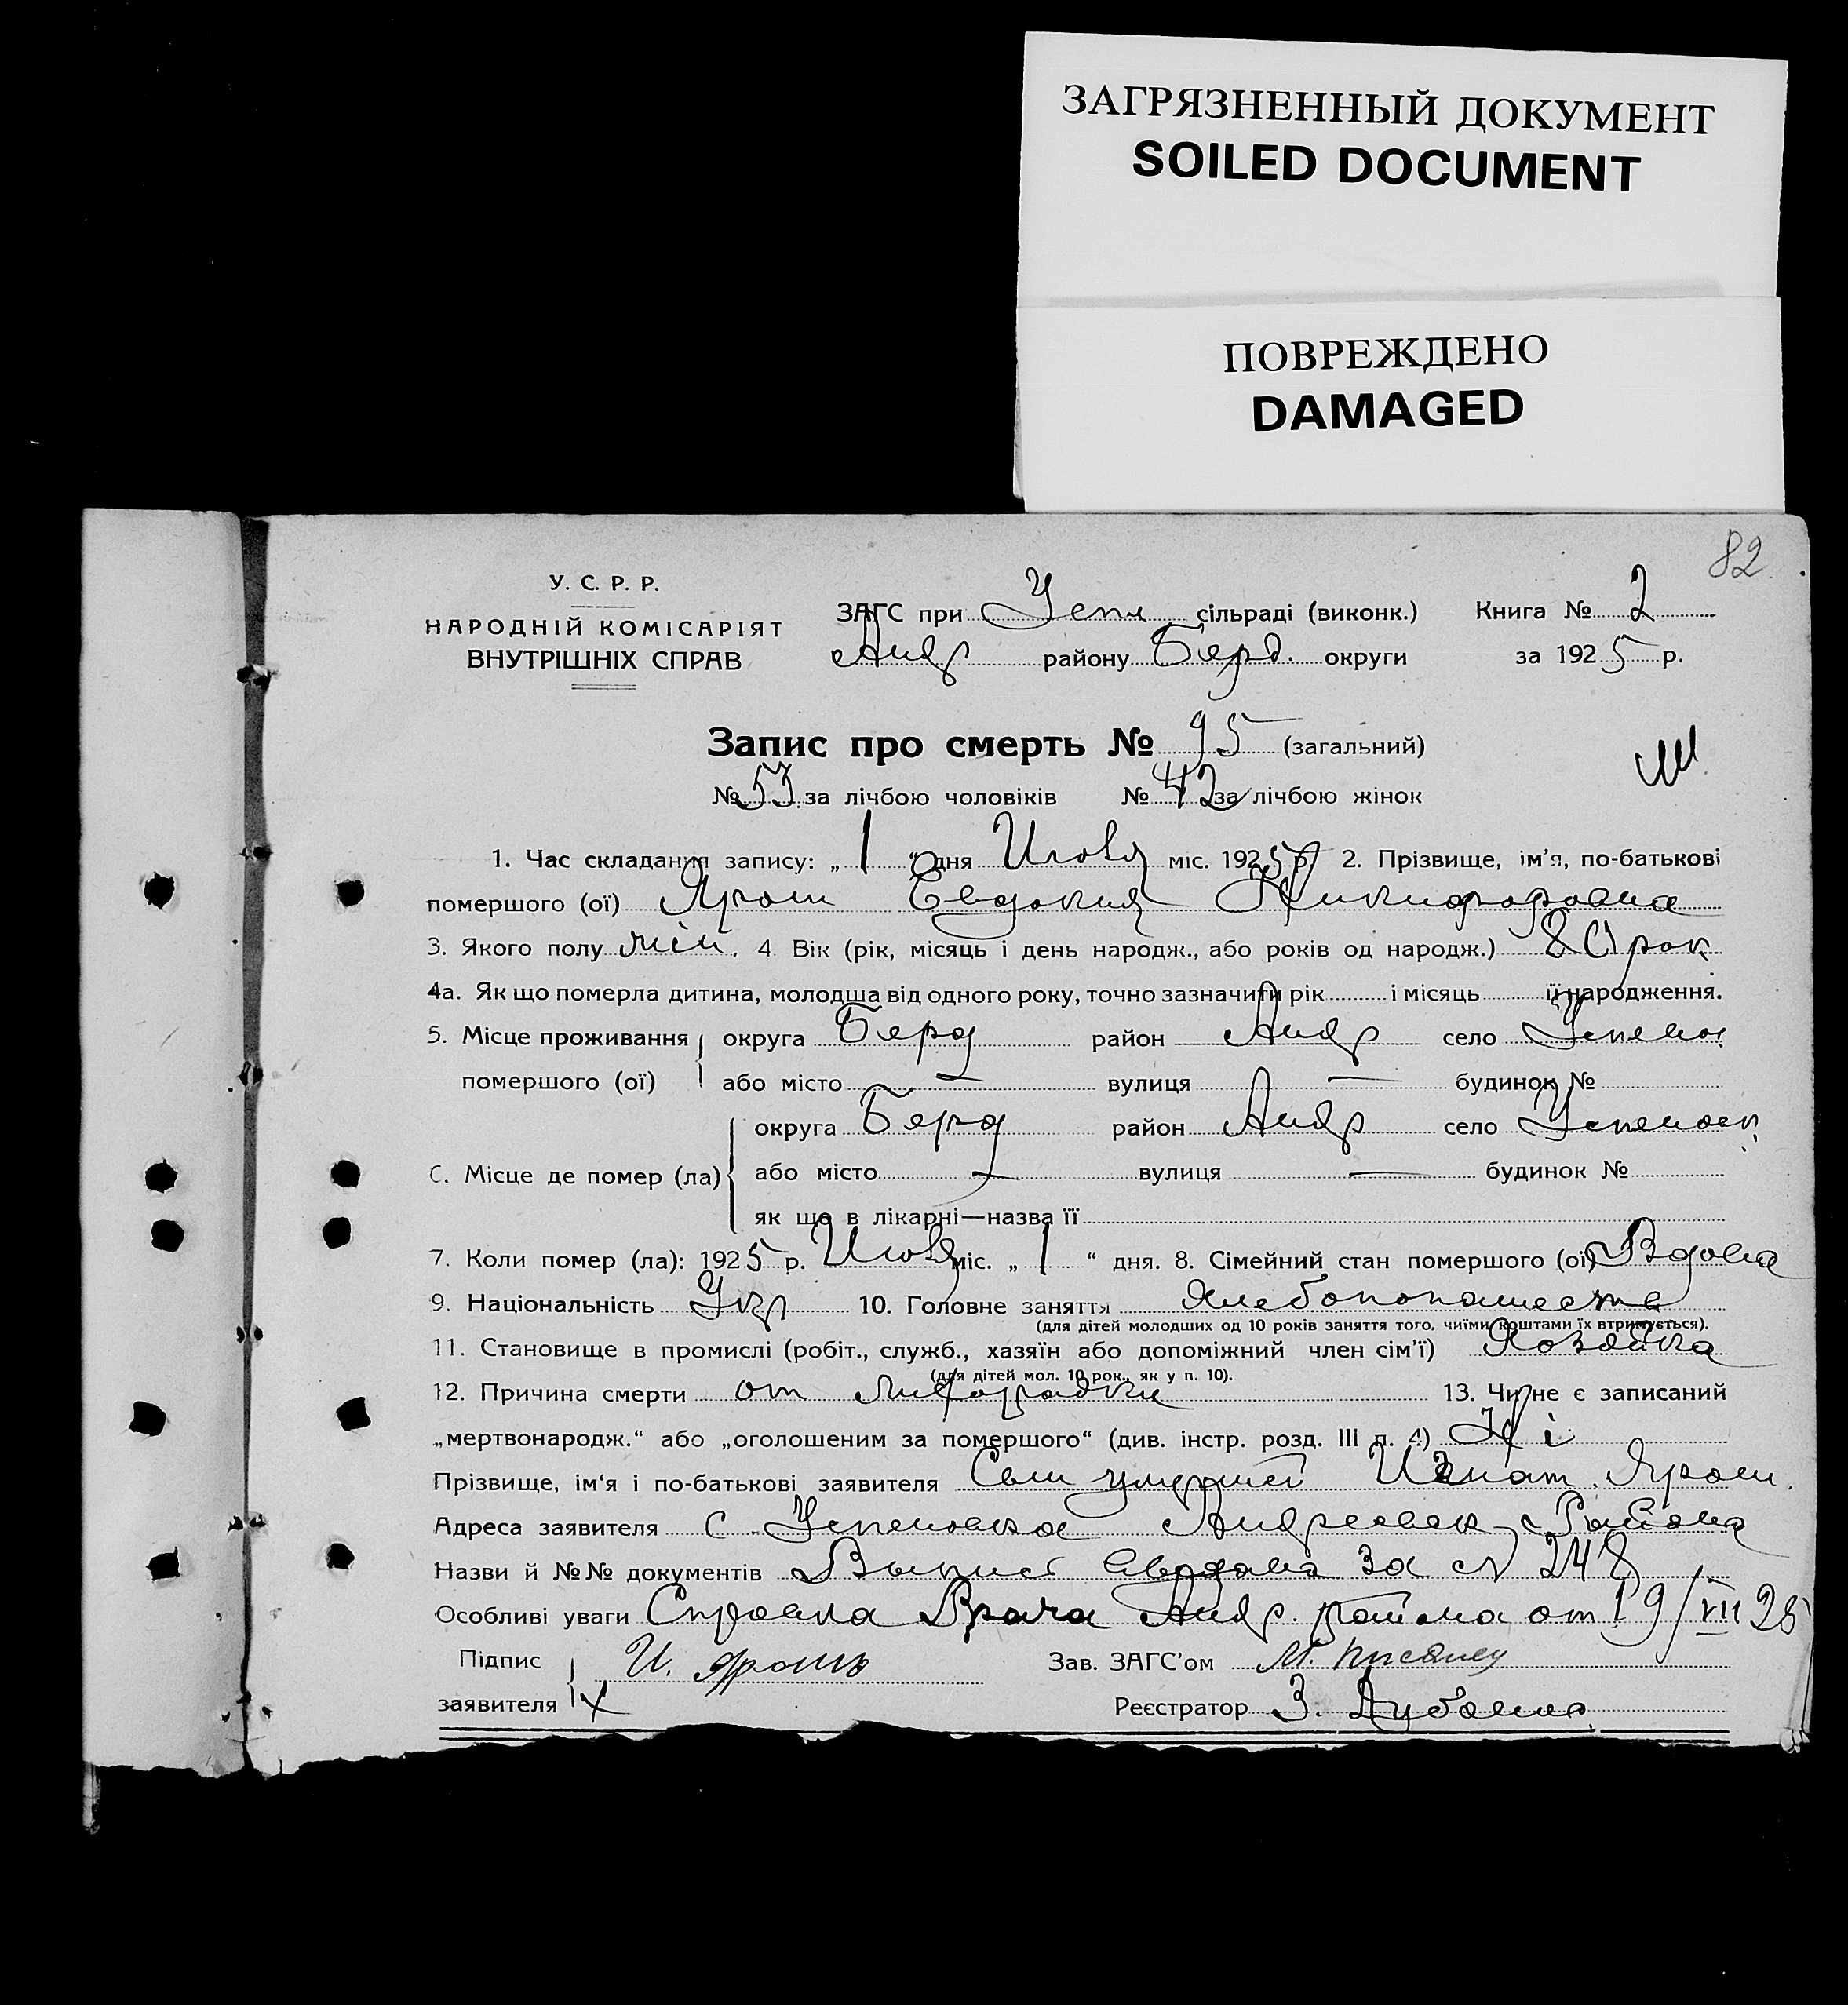 ЗАГРЯЗНЕННЫЙ ДОКУМЕНТ
SOILED DOCUMENT
ПОВРЕЖДЕНО
DAMAGED
82
У. С. Р. Р.
НАРОДНІЙ КОМІСАРІЯТ
ВНУТРІШНІХ СПРАВ
ЗАГС при Успн сільраді (виконк.) Книга № 2
Андр району Берд. округи за 1925 р.
Запис про смерть № 95 (загальний)
№ 53 за лічбою чоловіків № 42 за лічбою жінок
1. Час складання запису: „1“ дня Июля міс. 1925 р. 2. Прізвище, ім’я, по-батькові
помершого (ої) Ярош Евдокия Никифоровна
3. Якого полу жін. 4. Вік (рік, місяць і день народж., або років од народж.) 80 рок
4а. Як що померла дитина, молодша від одного року, точно зазначити рік і місяць її народження.
5. Місце проживання помершого (ої) округа Берд район Андр село Успенов
або місто — вулиця — будинок №
6. Місце де помер (ла) округа Берд район Андр село Успеновк
або місто — вулиця — будинок №
як що в лікарні—назва її
7. Коли помер (ла): 1925 р. Июля міс. „1“ дня. 8. Сімейний стан помершого (ої) Вдова
9. Національність Укр 10. Головне заняття Хлебопопашество
(для дітей молодших од 10 років заняття того, чиїми коштами їх втримується).
11. Становище в промислі (робіт., служб., хазяїн або допоміжний член сім’ї) Хозяйка
(для дітей мол. 10 рок., як у п. 10).
12. Причина смерти от лихорадки 13. Чи не є записаний
„мертвонародж.“ або „оголошеним за помершого“ (див. інстр. розд. III п. 4) Ні
Прізвище, ім‘я і по-батькові заявителя Сын умершей Игнат Ярош.
Адреса заявителя с. Успеновка Андреевск Района
Назви й №№ документів Выпись за № 248
Особливі уваги Справка Врача Андр. района от 19/VII 25
Підпис заявителя И. Ярошь Зав. ЗАГС’ом М.
х Реєстратор З.